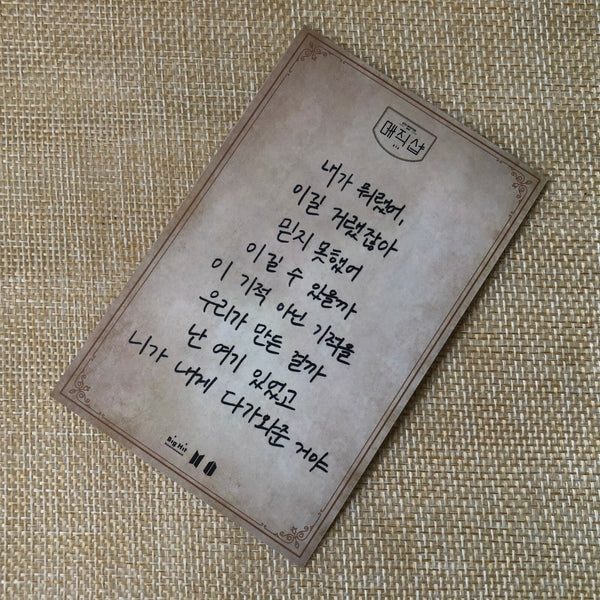 매직샵
내가 뭐랬어,
이길 거랬잖아
믿지 못했어
이길 수 있을까
이 기적 아닌 기적을
우리가 만든 걸까
난 여기 있었고
니가 내게 다가와준 거야
Big Hit